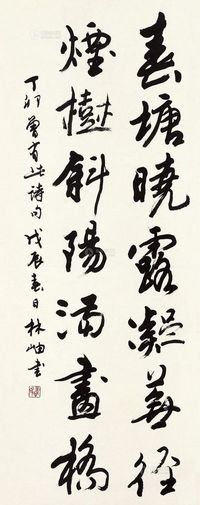 春塘曉露凝華徑
煙樹斜陽滿畫橋
丁卯曾有此詩句戊辰春日林岫書